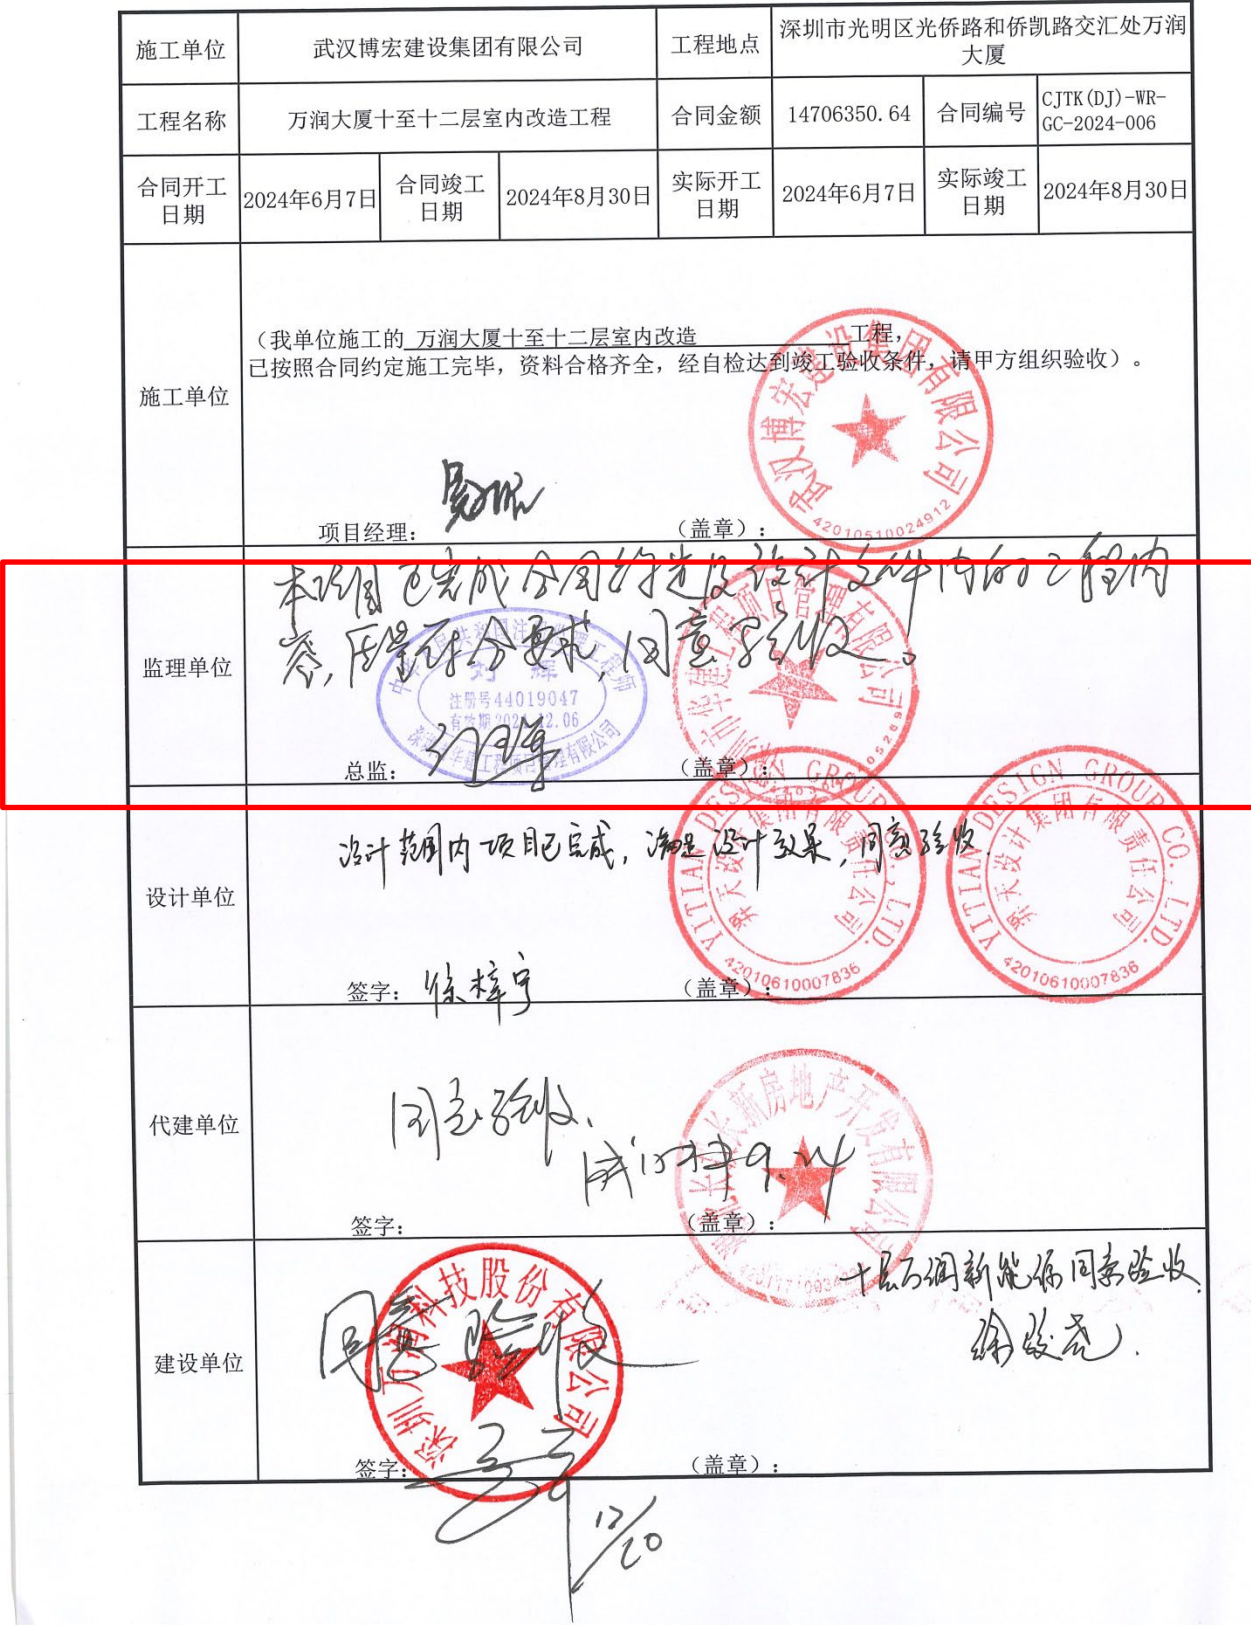 施工单位 武汉博宏建设集团有限公司 工程地点 深圳市光明区光侨路和侨凯路交汇处万润
大厦
工程名称 万润大厦十至十二层室内改造工程 合同金额 14706350.64 合同编号 CJTK(DJ)-WR-
GC-2024-006
合同开工
日期 2024年6月7日 合同竣工
日期 2024年8月30日 实际开工
日期 2024年6月7日 实际竣工
日期 2024年8月30日
施工单位
(我单位施工的 万润大厦十至十二层室内改造 工程,
已按照合同约定施工完毕,资料合格齐全,经自检达到竣工验收条件,请甲方组织验收)。
武汉博宏建设集团有限公司
42010510024912
项目经理: (盖章):
监理单位
本项目已完成合同约定及设计文件内的工程内
容,质量符合要求,同意验收。
中华人民共和国注册监理工程师
刘辉
注册号44019047
总监: 刘辉 (盖章):
设计单位
设计范围内项目已完成,满足设计效果,同意验收.
YITIAN DESIGN GROUP CO.,LTD.
羿天设计集团有限责任公司
42010610007836
YITIAN DESIGN GROUP CO.,LTD.
羿天设计集团有限责任公司
42010610007836
签字: 徐梓宁 (盖章):
代建单位
同意验收.
9.24
签字: (盖章):
建设单位
十层万润新能源同意验收.
同意验收
深圳万润科技股份有限公司
签字: (盖章):
12/20